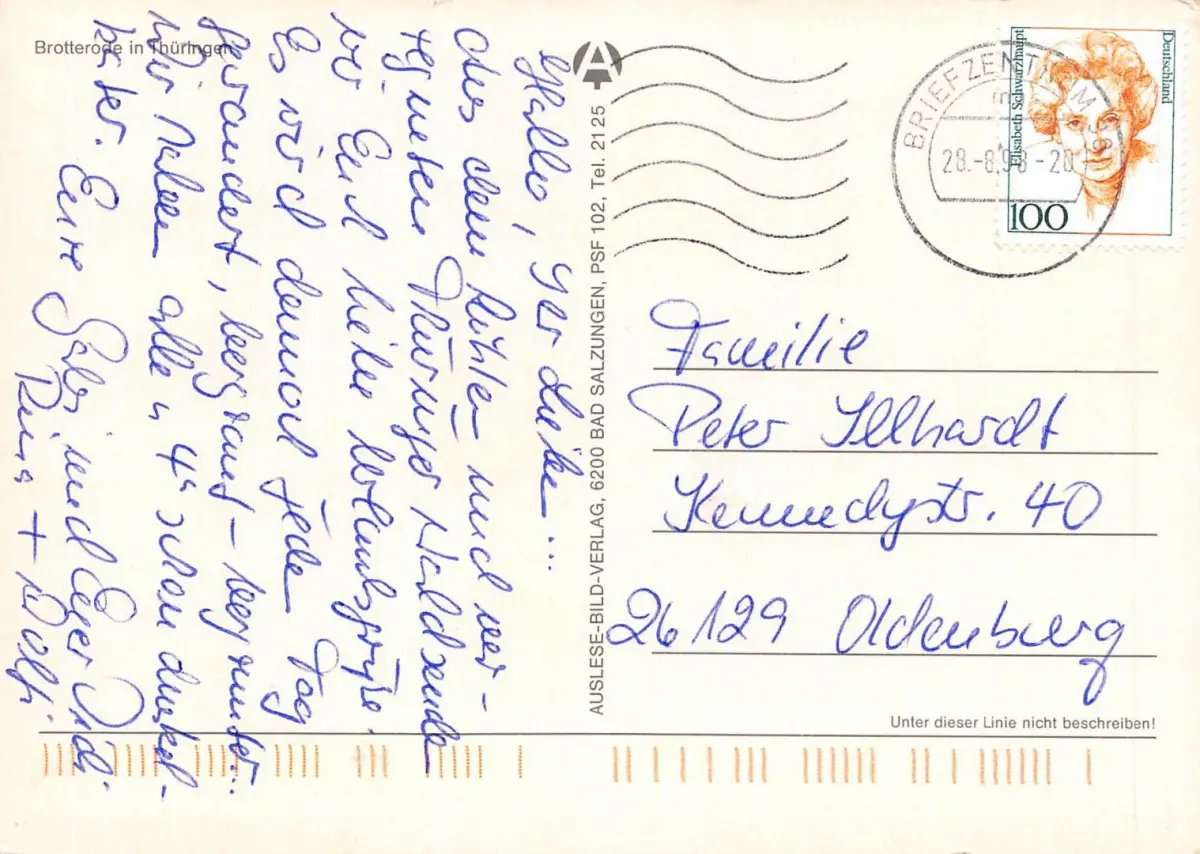 Brotterode in Thüringen
Hallo, Ihr Lieben...
Aus dem kühlen und ver-
regneten Thüringer Wald senden
wir Euch liebe Urlaubsgrüße.
Es wird dennoch jeden Tag
gewandert, bergrauf - bergrunter...
Wir haben alle "4" schon
kater. Eure Gabi und Euer Didi
+
AUSLESE-BILD-VERLAG, 6200 BAD SALZUNGEN, PSF 102, Tel. 2125
BRIEFZENTRUM
28.-8.98-20
Deutschland
Elisabeth Schwarzhaupt
100
Familie
Peter Illhardt
Kennedystr. 40
26129 Oldenburg
Unter dieser Linie nicht beschreiben!